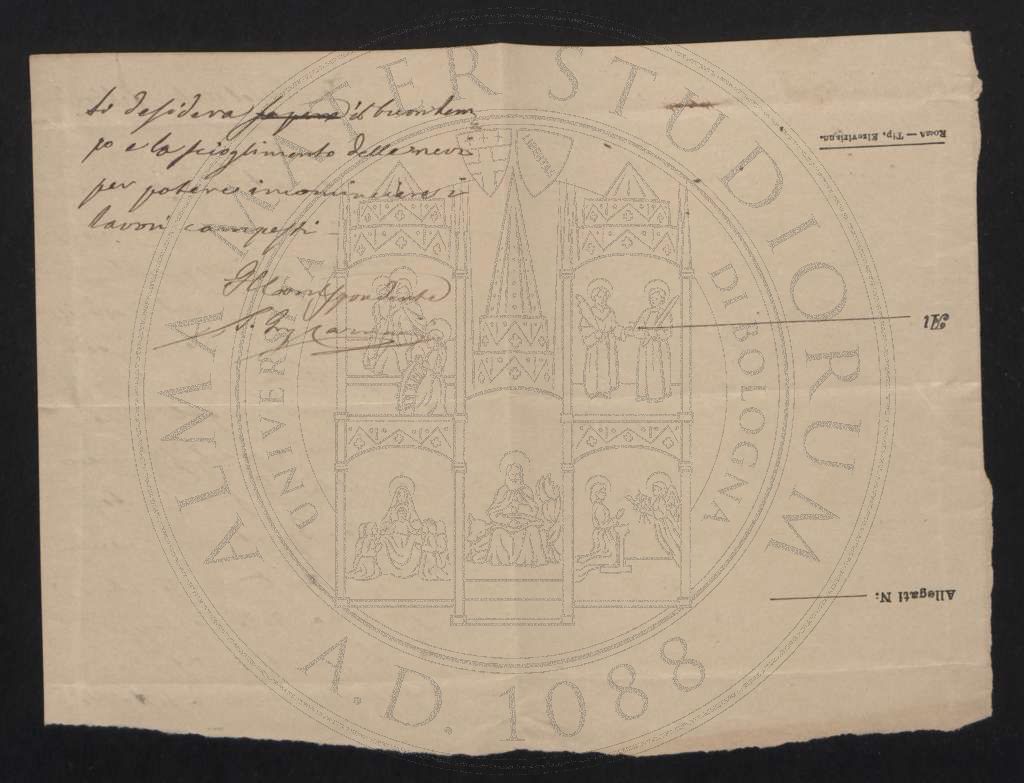 Si desidera sapere il buon tem
po e lo scioglimento delle nevi
per potere incominciare i
lavori campestri
Il Corrispondente
Roma — Tip. Elzeviriana.
Al
Allegati N.
ALMA MATER STUDIORUM
UNIVERSITÀ DI BOLOGNA
LIBERTAS
A.D. 1088